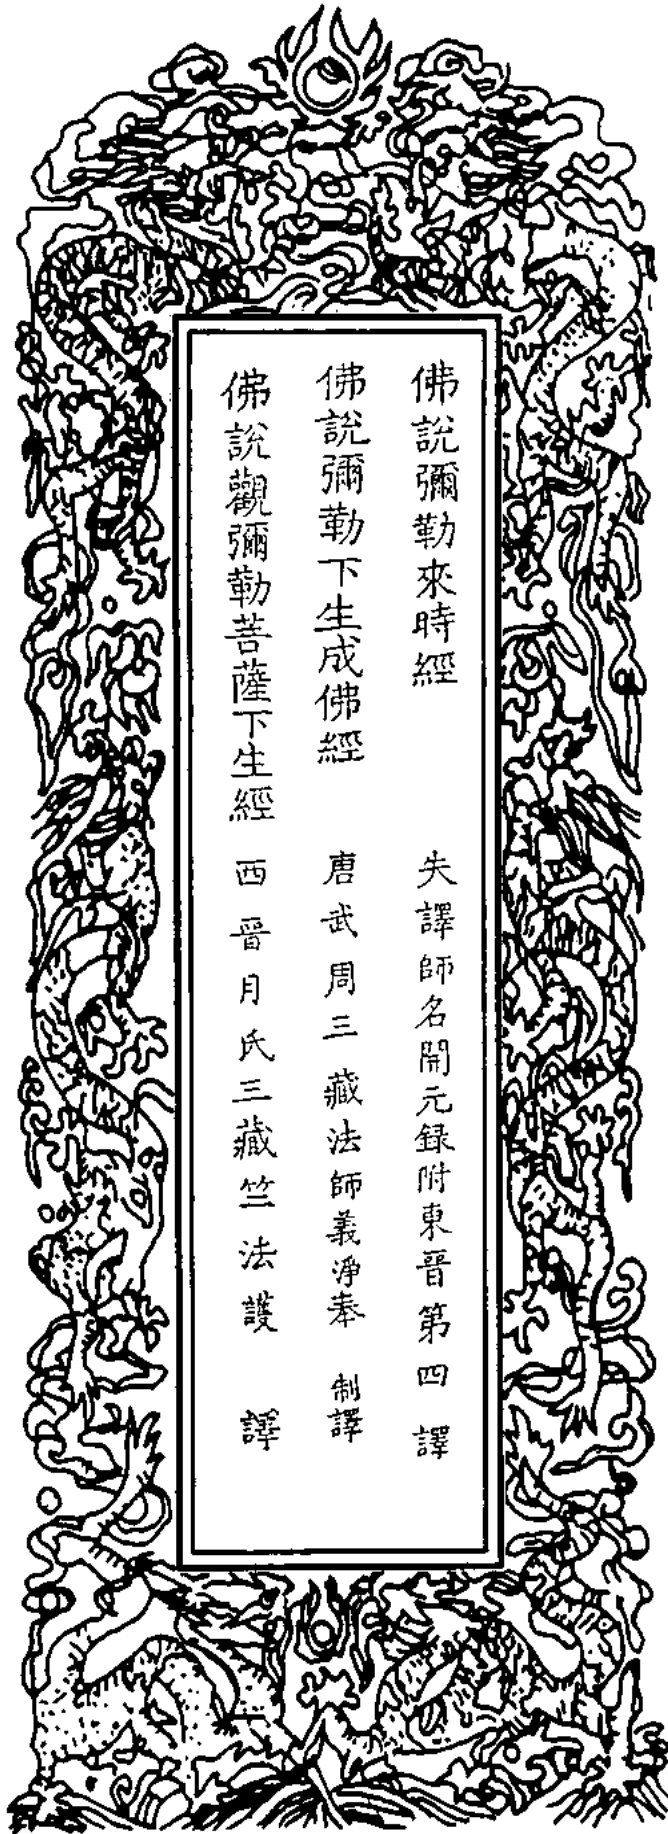 佛說彌勒來時經 失譯師名開元録附東晉第四譯
佛說彌勒下生成佛經 唐武周三藏法師義淨奉 制譯
佛說觀彌勒菩薩下生經 西晉月氏三藏竺法護 譯